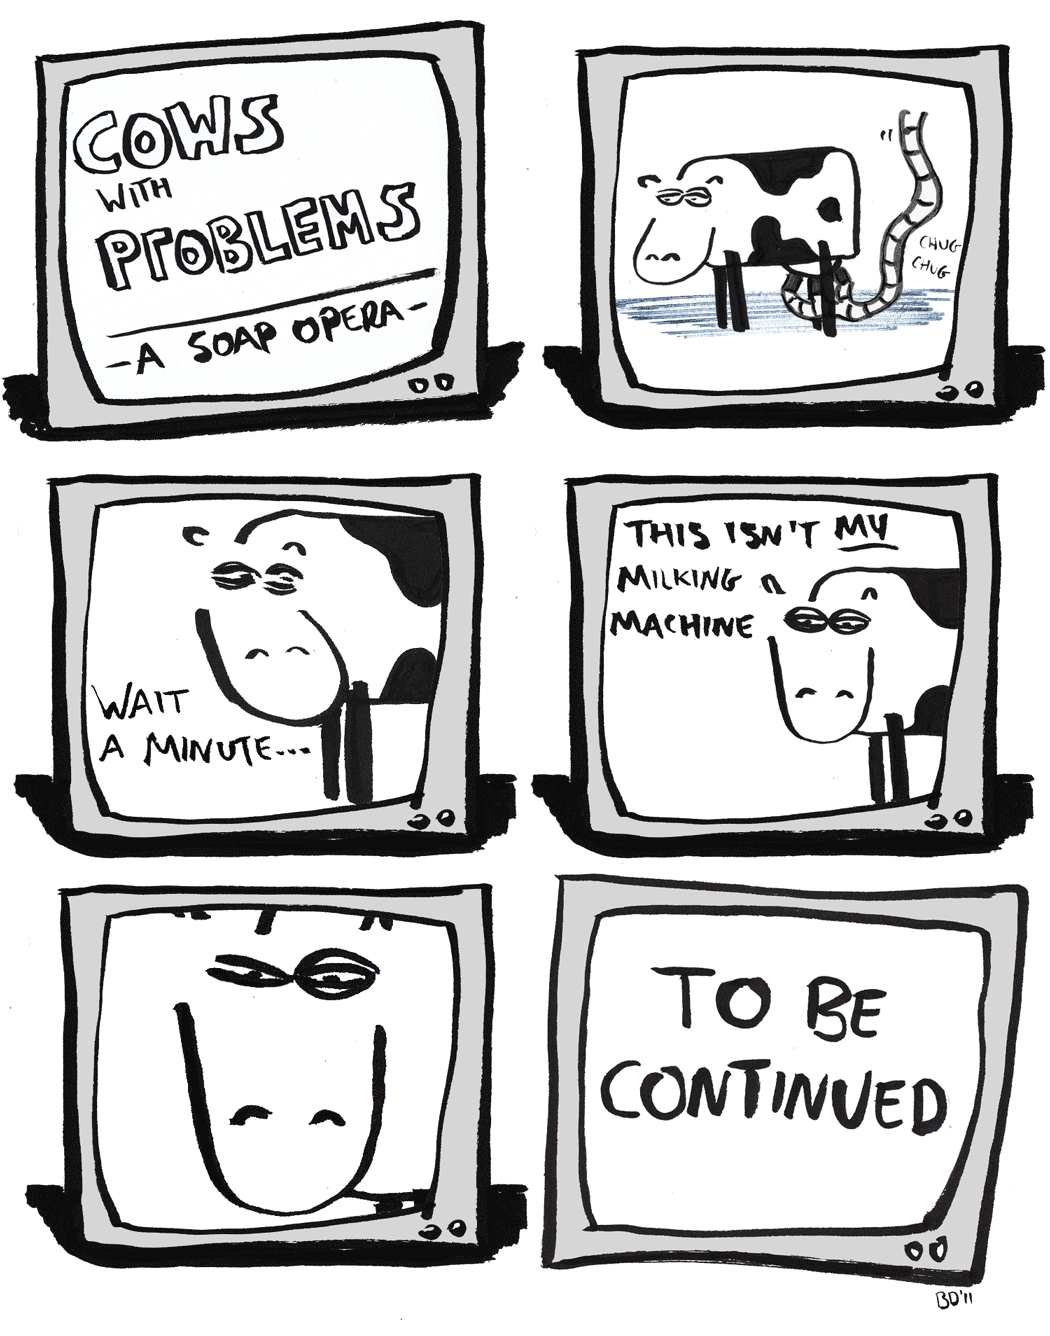 COWS
WITH
PROBLEMS
-A SOAP OPERA-
CHUG
CHUG
WAIT
A MINUTE...
THIS ISN'T MY
MILKING
MACHINE
TO BE
CONTINUED
BD'11